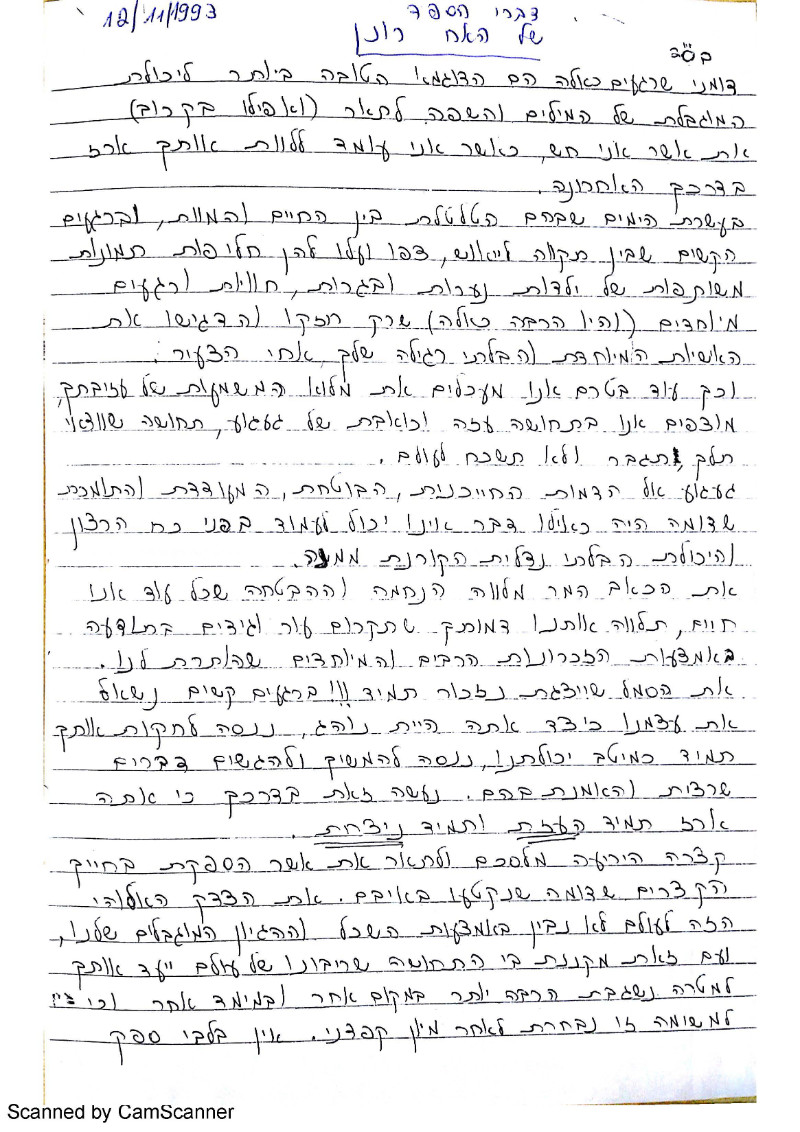 12/11/1993
דברי הספד
של האח רונן
בס"ד
דומני שרגעים כאלה הם הדוגמא הטובה ביותר ליכולת
המוגבלת של המילים והשפה לתאר (ואפילו בקרוב)
את אשר אני חש, כאשר אני עומד ללוות אותך ארז
בדרכך האחרונה.
בעשרת הימים שבהם הטלטלת בין החיים והמוות, וברגעים
הקשים שבין תקווה לייאוש, צפו ועלו להן חליפות תמונות
משותפות של ילדות נערות ובגרות, חוויות ורגעים
מיוחדים (והיו הרבה כאלה) שרק חזקו והדגישו את
האשיות המיוחדת והבלתי רגילה שלך, אחי הצעיר.
וכך עוד בטרם אנו מעכלים את מלוא המשמעות של עזיבתך,
מוצפים אנו בתחושה עזה וכואבת של געגוע, תחושה שוודאי
תלך ותגבר ולא תשכח לעולם.
געגוע אל הדמות החייכנית, הבוטחת, המעודדת והתומכת
שדומה היה כאילו דבר אינו יכול לעמוד בפני כח הרצון
והיכולת הבלתי נדלית הקורנת ממנה.
את הכאב המר מלווה הנחמה וההבטחה שכל עוד אנו
חיים, תלווה אותנו דמותך שתקרום עור וגידים בתודעה
באמצעות הזכרונות הרבים והמיוחדים שהותרת לנו.
את הסמל שייצגת נזכור תמיד!!! ברגעים קשים נשאול
את עצמנו כיצד אתה היית נוהג, ננסה לחקות אותך
תמיד כמיטב יכולתנו, ננסה להמשיך ולהגשים דברים
שרצית והאמנת בהם. נעשה זאת בדרכך כי אתה
ארז תמיד העזת ותמיד ניצחת.
קצרה היריעה מלסכם ולתאר את אשר הספקת בחייך
הקצרים שדומה שנקטעו באיבם. את הצדק האלוהי
הזה לעולם לא נבין באמצעות השכל וההגיון המוגבלים שלנו,
ועם זאת מקננת בי התחושה שריבונו של עולם ייעד אותך
למטרה נשגבת הרבה יותר במקום אחר ובמימד אחר וכי
למשומה זו נבחרת לאחר מיון קפדני. אין בלבי ספק
Scanned by CamScanner